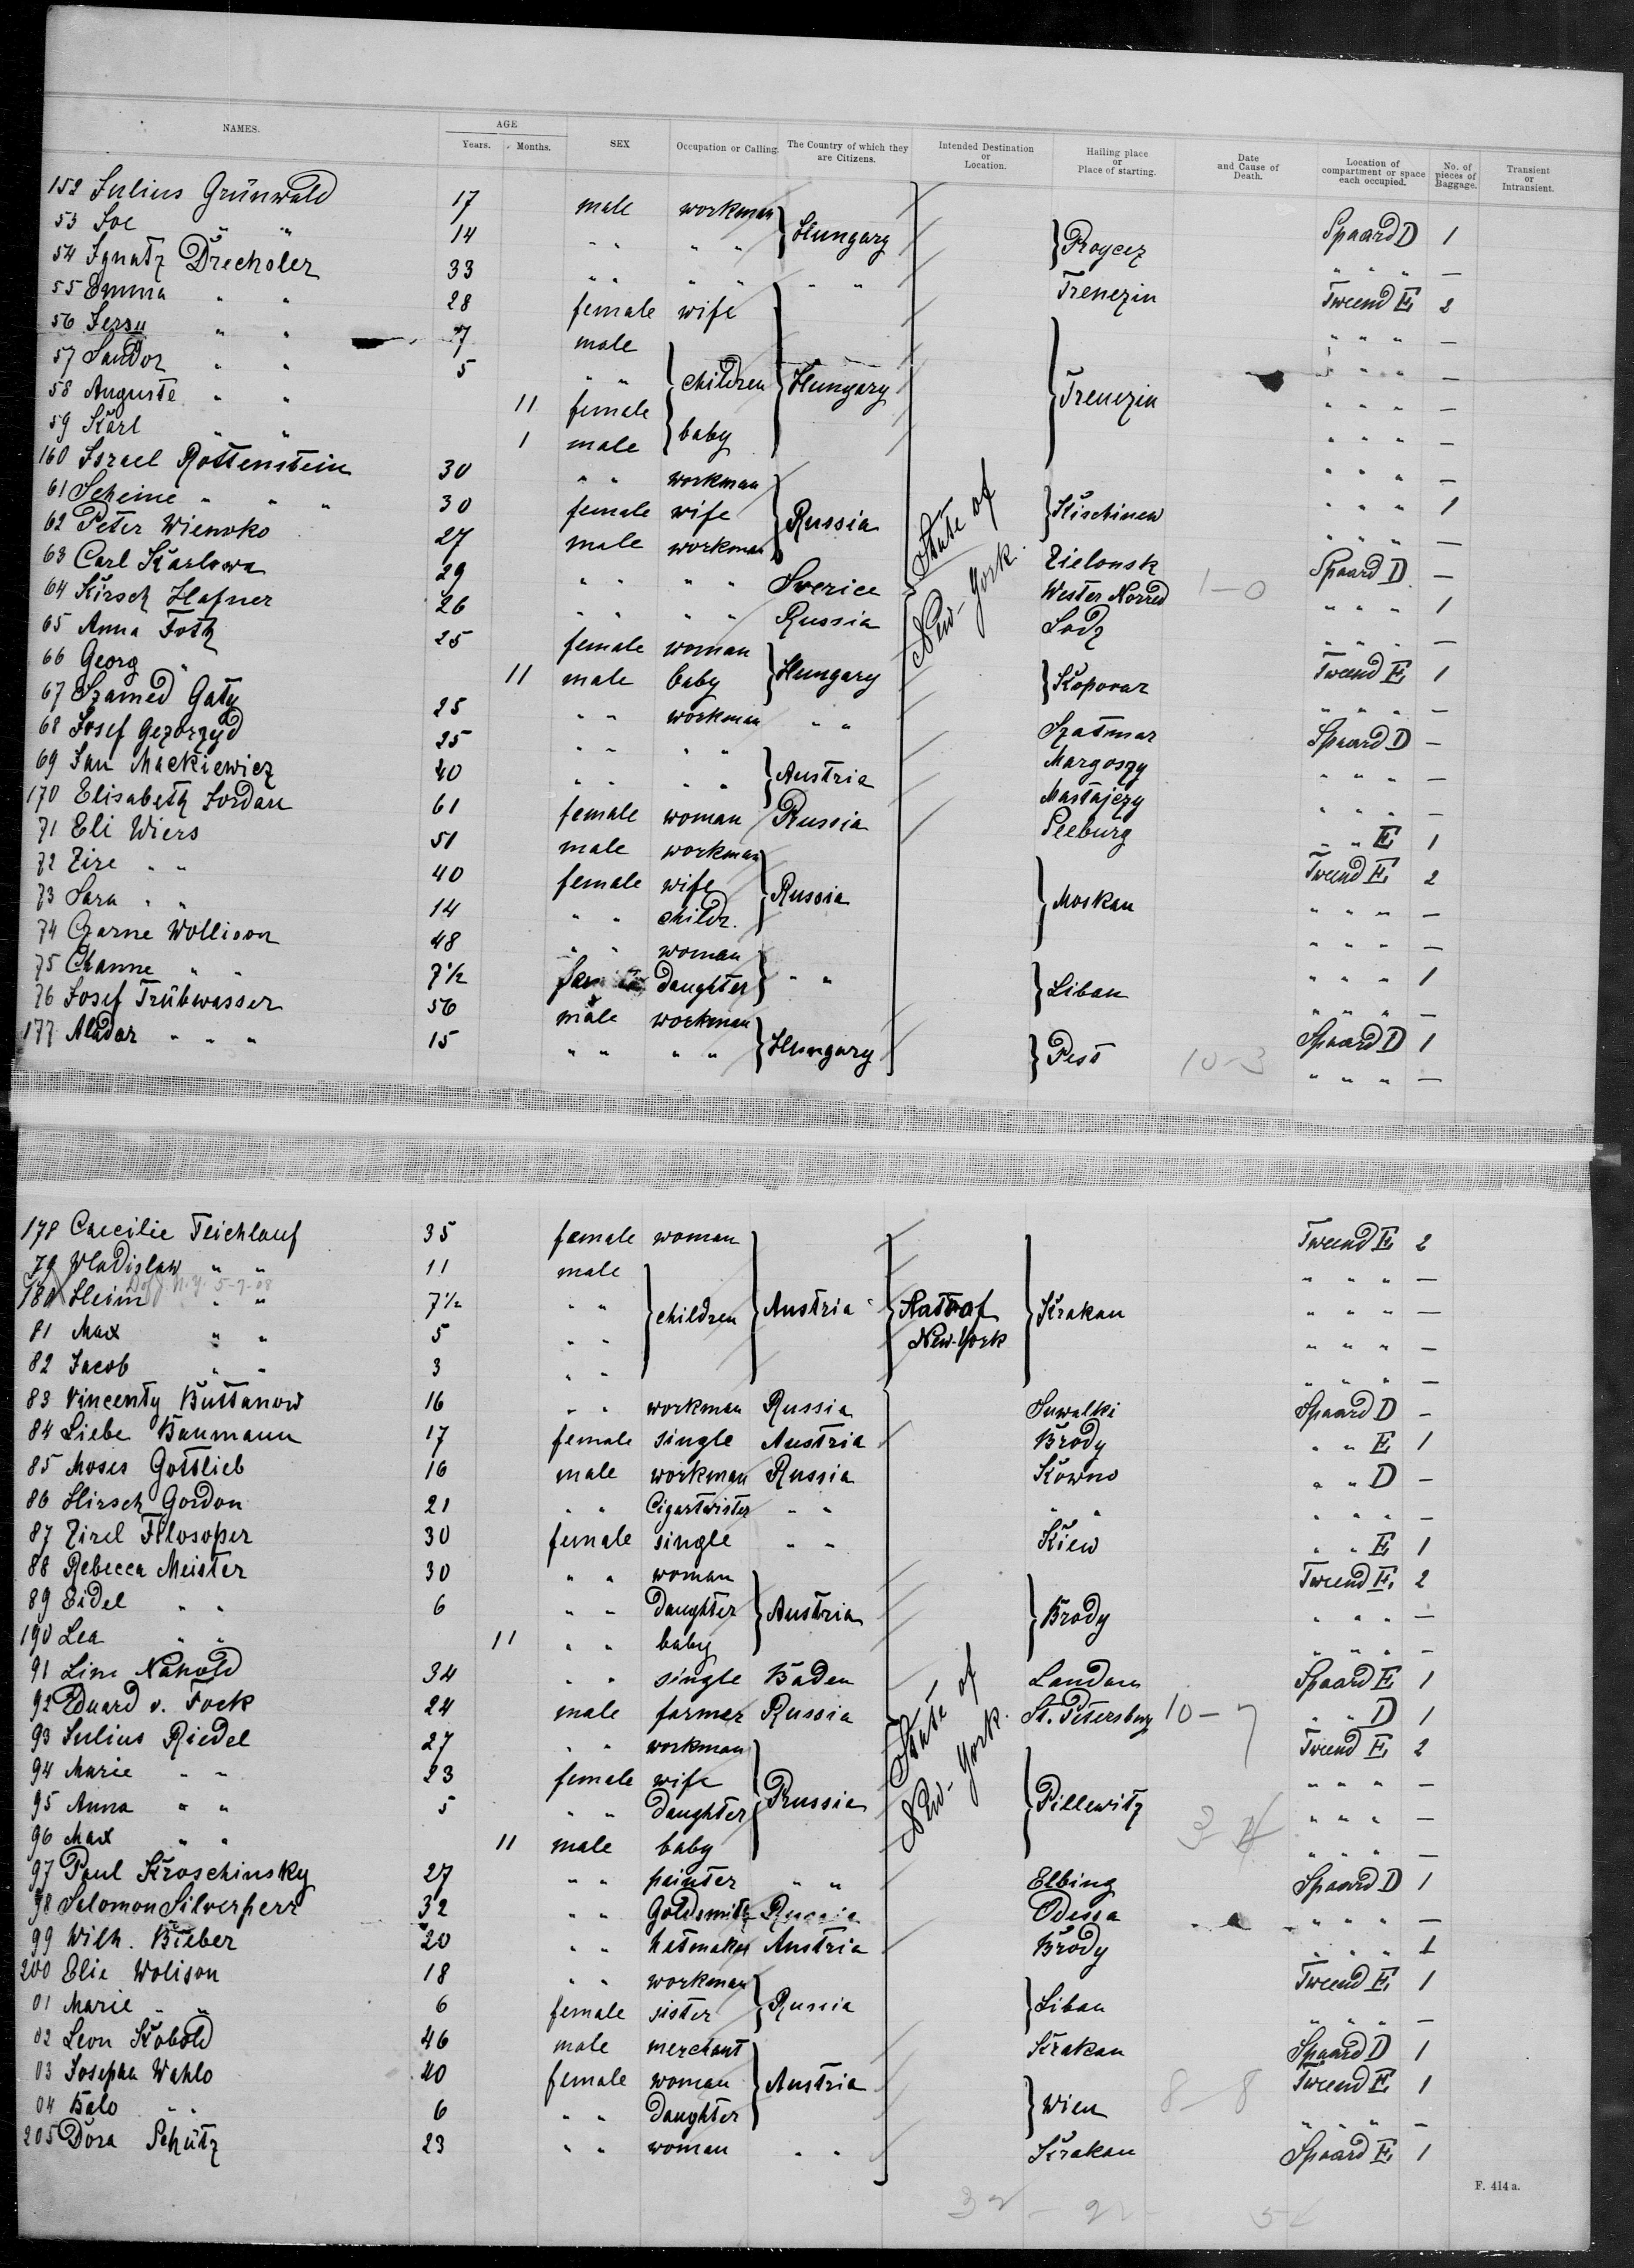 NAMES. AGE Years. Months. SEX Occupation or Calling. The Country of which they are Citizens. Intended Destination or Location. Hailing place or Place of starting. Date and Cause of Death. Location of compartment or space each occupied. No. of pieces of Baggage. Transient or Intransient.
152 Julius Grünwald 17 male workman } Hungary } Spaard D 1
53 Joe " " 14 " " " " " " " —
54 Ignatz Drechsler 33 " " " " " " Trenezin Tweend E 2
55 Emma " " 28 female wife " " " —
56 Jersu " " 7 male " " " —
57 Sandor " " 5 " " } children } Hungary } Trenezin " " " —
58 Auguste " " 11 female " " " —
59 Karl " " 1 male } baby " " " —
160 Israel Rottenstein 30 " " workman } Russia } Kischinew " " " 1
61 Scheine " " " 30 female wife " " " —
62 Peter Wienoko 27 male workman Zielonsk Spaard D —
63 Carl Karlowa 29 " " " " Sverice Wester Norred 1-0 " " " 1
64 Kirsch Hafner 26 " " " " Russia Lodz " " " —
State of New-York.
65 Anna Foth 25 female woman } Hungary } Kopovar Tweend E 1
66 Georg " 11 male baby " " " —
67 Szamed Gaty 25 " " workman " " Szatmar Spaard D —
68 Josef Gezorzyd 25 " " " " } Austria Margoszy " " " —
69 Jan Mackiewicz 40 " " " " Mastajezy " " " —
170 Elisabeth Jordan 61 female woman Russia Seeburg " " E 1
71 Eli Wiers 51 male workman } Russia } Moskau Tweend E 2
72 Zire " " 40 female wife " " " —
73 Sara " " 14 " " childr. " " " —
74 Czarne Wollison 48 " " woman } " " } Libau " " " 1
75 Channe " " 7½ daughter " " " —
76 Josef Trübwasser 56 male workman } Hungary } Pest 10-3 Spaard D 1
177 Aladar " " " 15 " " " " " " " —
178 Caecilie Teichlauf 35 female woman Tweend E 2
79 Wladislaw " " 11 male " " " —
N.Y. 5-7-08
180 Heim " " 7½ " " } children } Austria } State of New-York } Krakau " " " —
81 Max " " 5 " " " " " —
82 Jacob " " 3 " " " " " —
83 Vincenty Buttanow 16 " " workman Russia Suwalki Spaard D —
84 Liebe Baumann 17 female single Austria Brody " " E 1
85 Moses Gottlieb 16 male workman Russia Kowno " " D —
86 Hirsch Gordon 21 " " Cigartwister " " " " " " " —
87 Zirel Filosoper 30 female single " " Kiew " " E 1
88 Rebecca Meister 30 " " woman } Austria } Brody Tweend E 2
89 Eidel " " 6 " " daughter " " " —
190 Lea " " 11 " " baby " " " —
91 Line Nahold 34 " " single Baden Landau Spaard E 1
92 Eduard v. Fock 24 male farmer Russia St. Petersburg 10-7 " " D 1
State of New-York.
93 Julius Riedel 27 " " workman } Prussia } Pillewitz Tweend E 2
94 Marie " " 23 female wife " " " —
95 Anna " " 5 " " daughter " " " —
96 Max " " 11 male baby " " " —
97 Paul Kroschinsky 27 " " painter " " Elbing Spaard D 1
98 Salomon Silverherr 32 " " Goldsmith Russia Odessa " " " —
99 Wilh. Bieber 20 " " hatmaker Austria Brody " " " 1
200 Elia Wolison 18 " " workman } Russia } Libau Tweend E 1
01 Marie " " 6 female sister " " " —
02 Leon Kobold 46 male merchant } Austria Krakau Spaard D 1
03 Josepha Wahlo 40 female woman } Wien 8-8 Tweend E 1
04 Balo " " 6 " " daughter " " " —
205 Dora Schütz 23 " " woman " " Krakau Spaard E 1
F. 414 a.